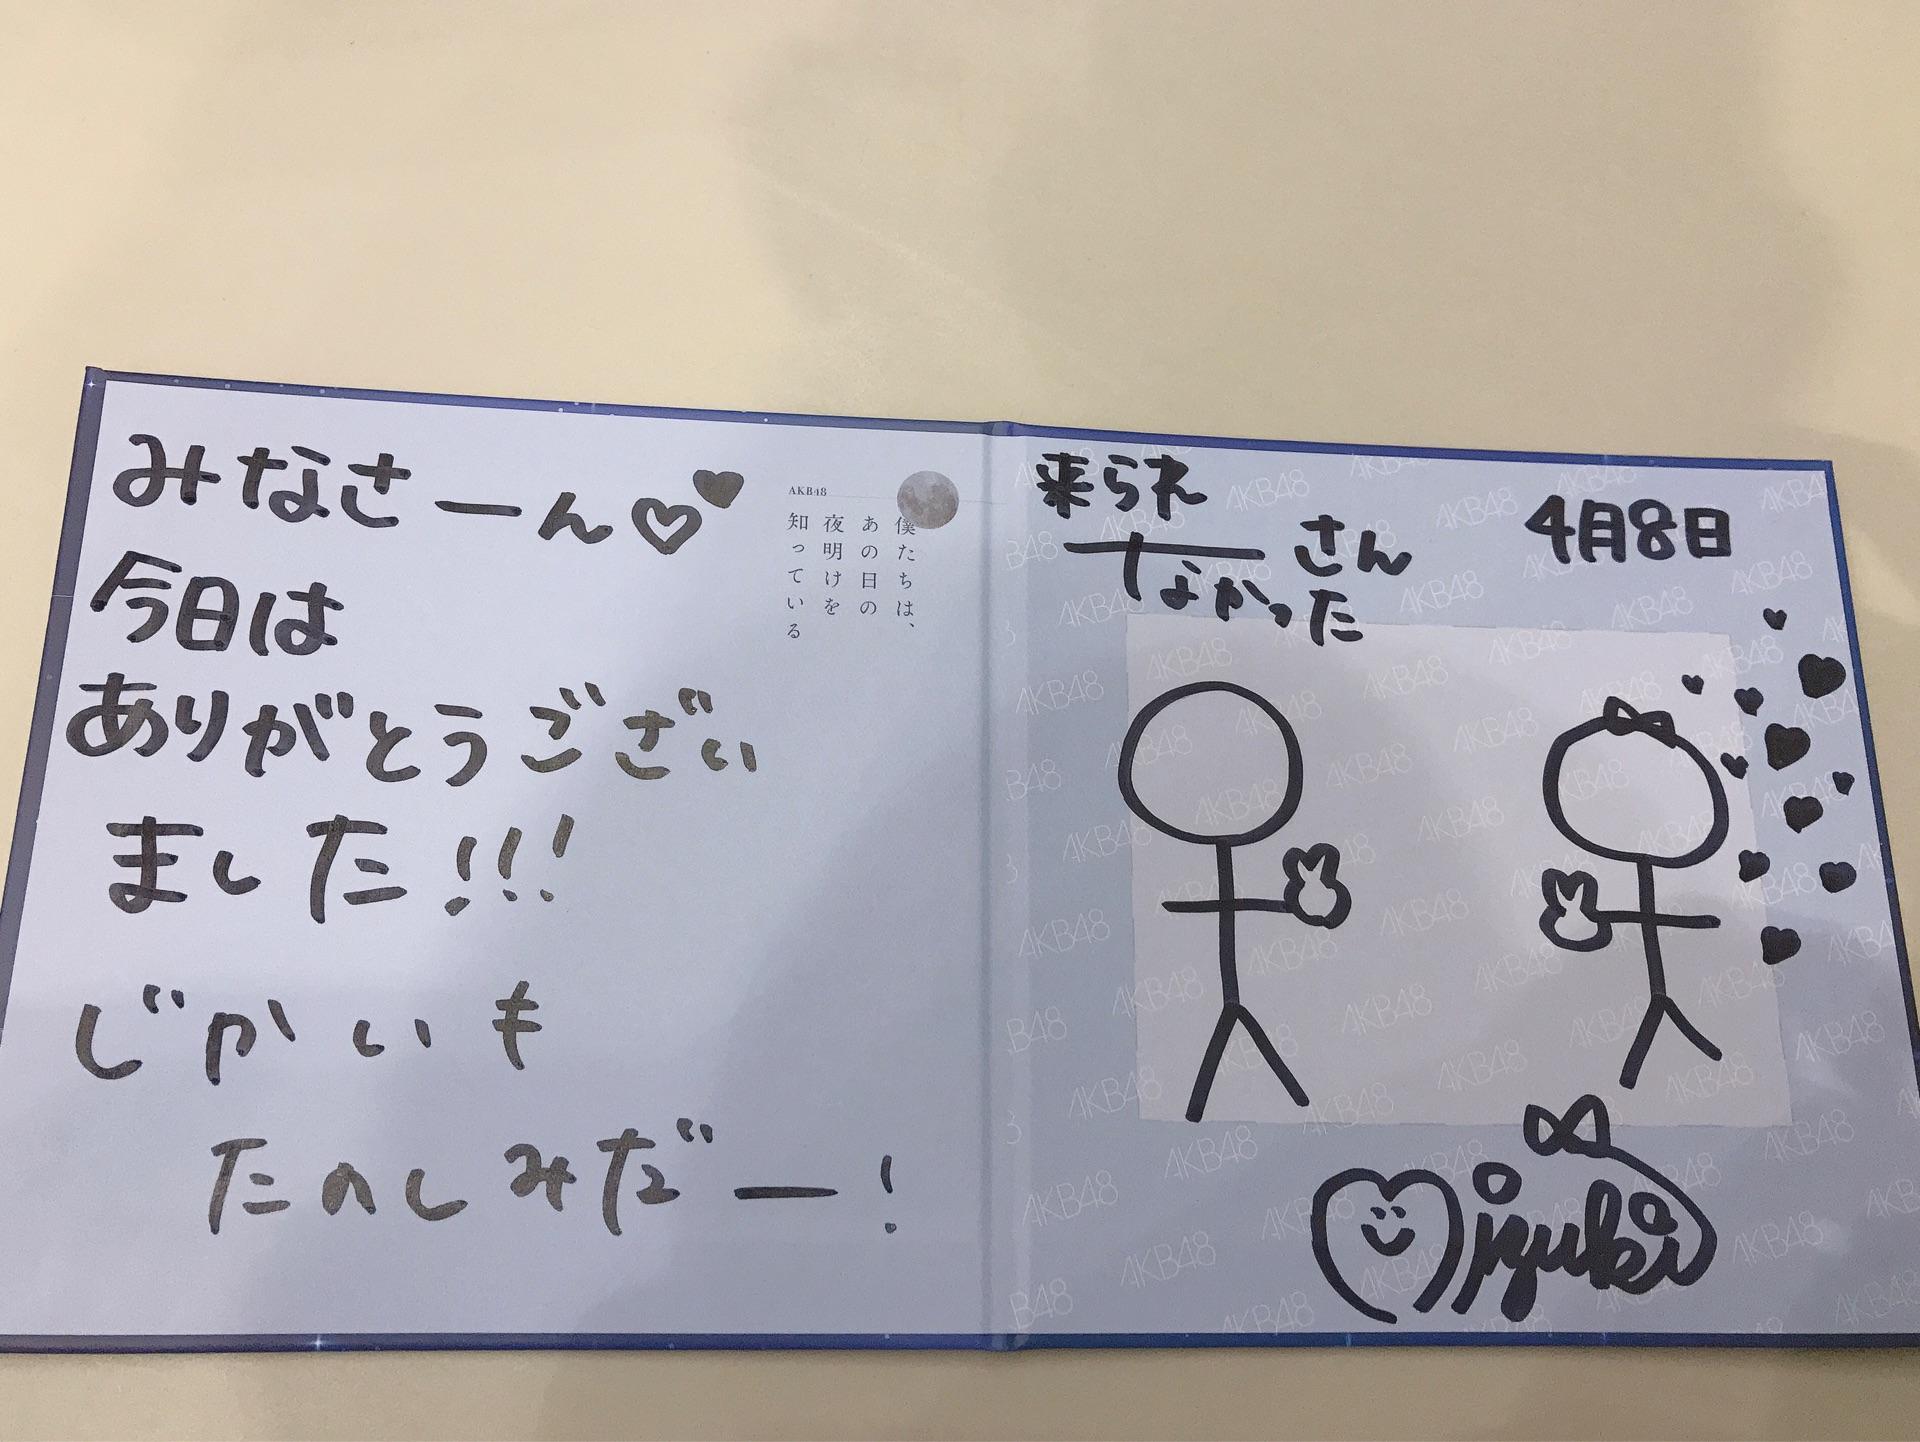 みなさーん
今日は
ありがとうござい
ました!!!
じかいも
たのしみだー!
AKB48
僕たちは、
あの日の
夜明けを
知っている
来られ
なかった
さん
4月8日
Miyuki
AKB48